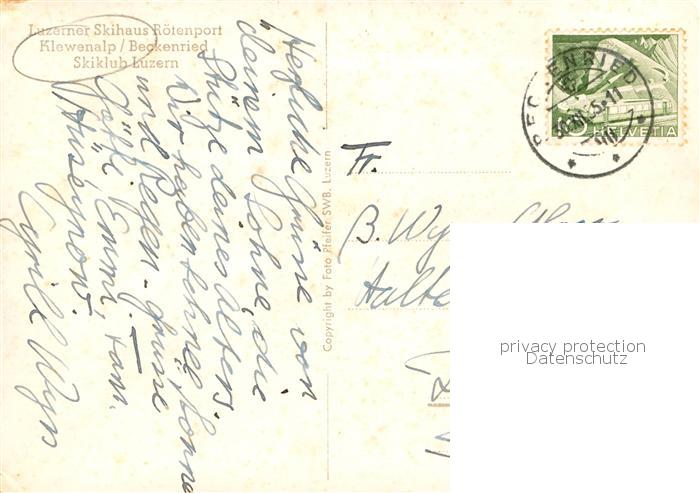 Luzerner Skihaus Rötenport
Klewenalp / Beckenried
Skiklub Luzern
Hezliche Grüsse von
deinem Sohne, die
Stütze deines Alters.
Wir haben Schnee, Sonne
und Regen. Grüsse
Götti, Emmi, Fam.
Cyrill Wyss
Copyright by Foto Pfeifer SWB. Luzern
BECKENRIED
HELVETIA
Fr.
B. Wy
Halte
privacy protection
Datenschutz